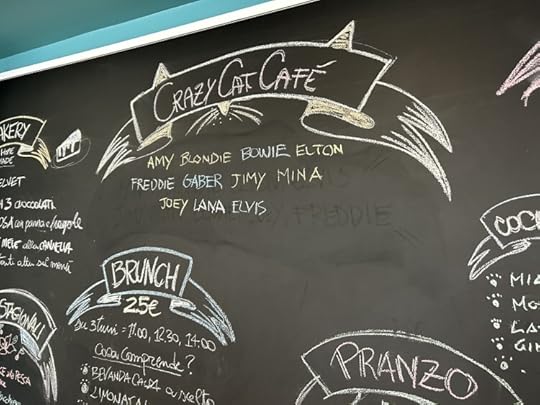 CRAZY CAT CAFÉ
AMY BLONDIE BOWIE ELTON
FREDDIE GABER JIMY MINA
JOEY LANA ELVIS
FREDDIE
AKERY
HOME
MADE
ELVET
3 CIOCCOLATI
OSA con panna e fragole
NEVE alla CANNELLA
tanti altri sul menù
STAGIONALI
BRUNCH
25€
3 turni = 11.00, 12.30, 14.00
Cosa comprende?
BEVANDA CALDA a scelta
LIMONATA
PRANZO
COC
MIA
MO
LA
GIN